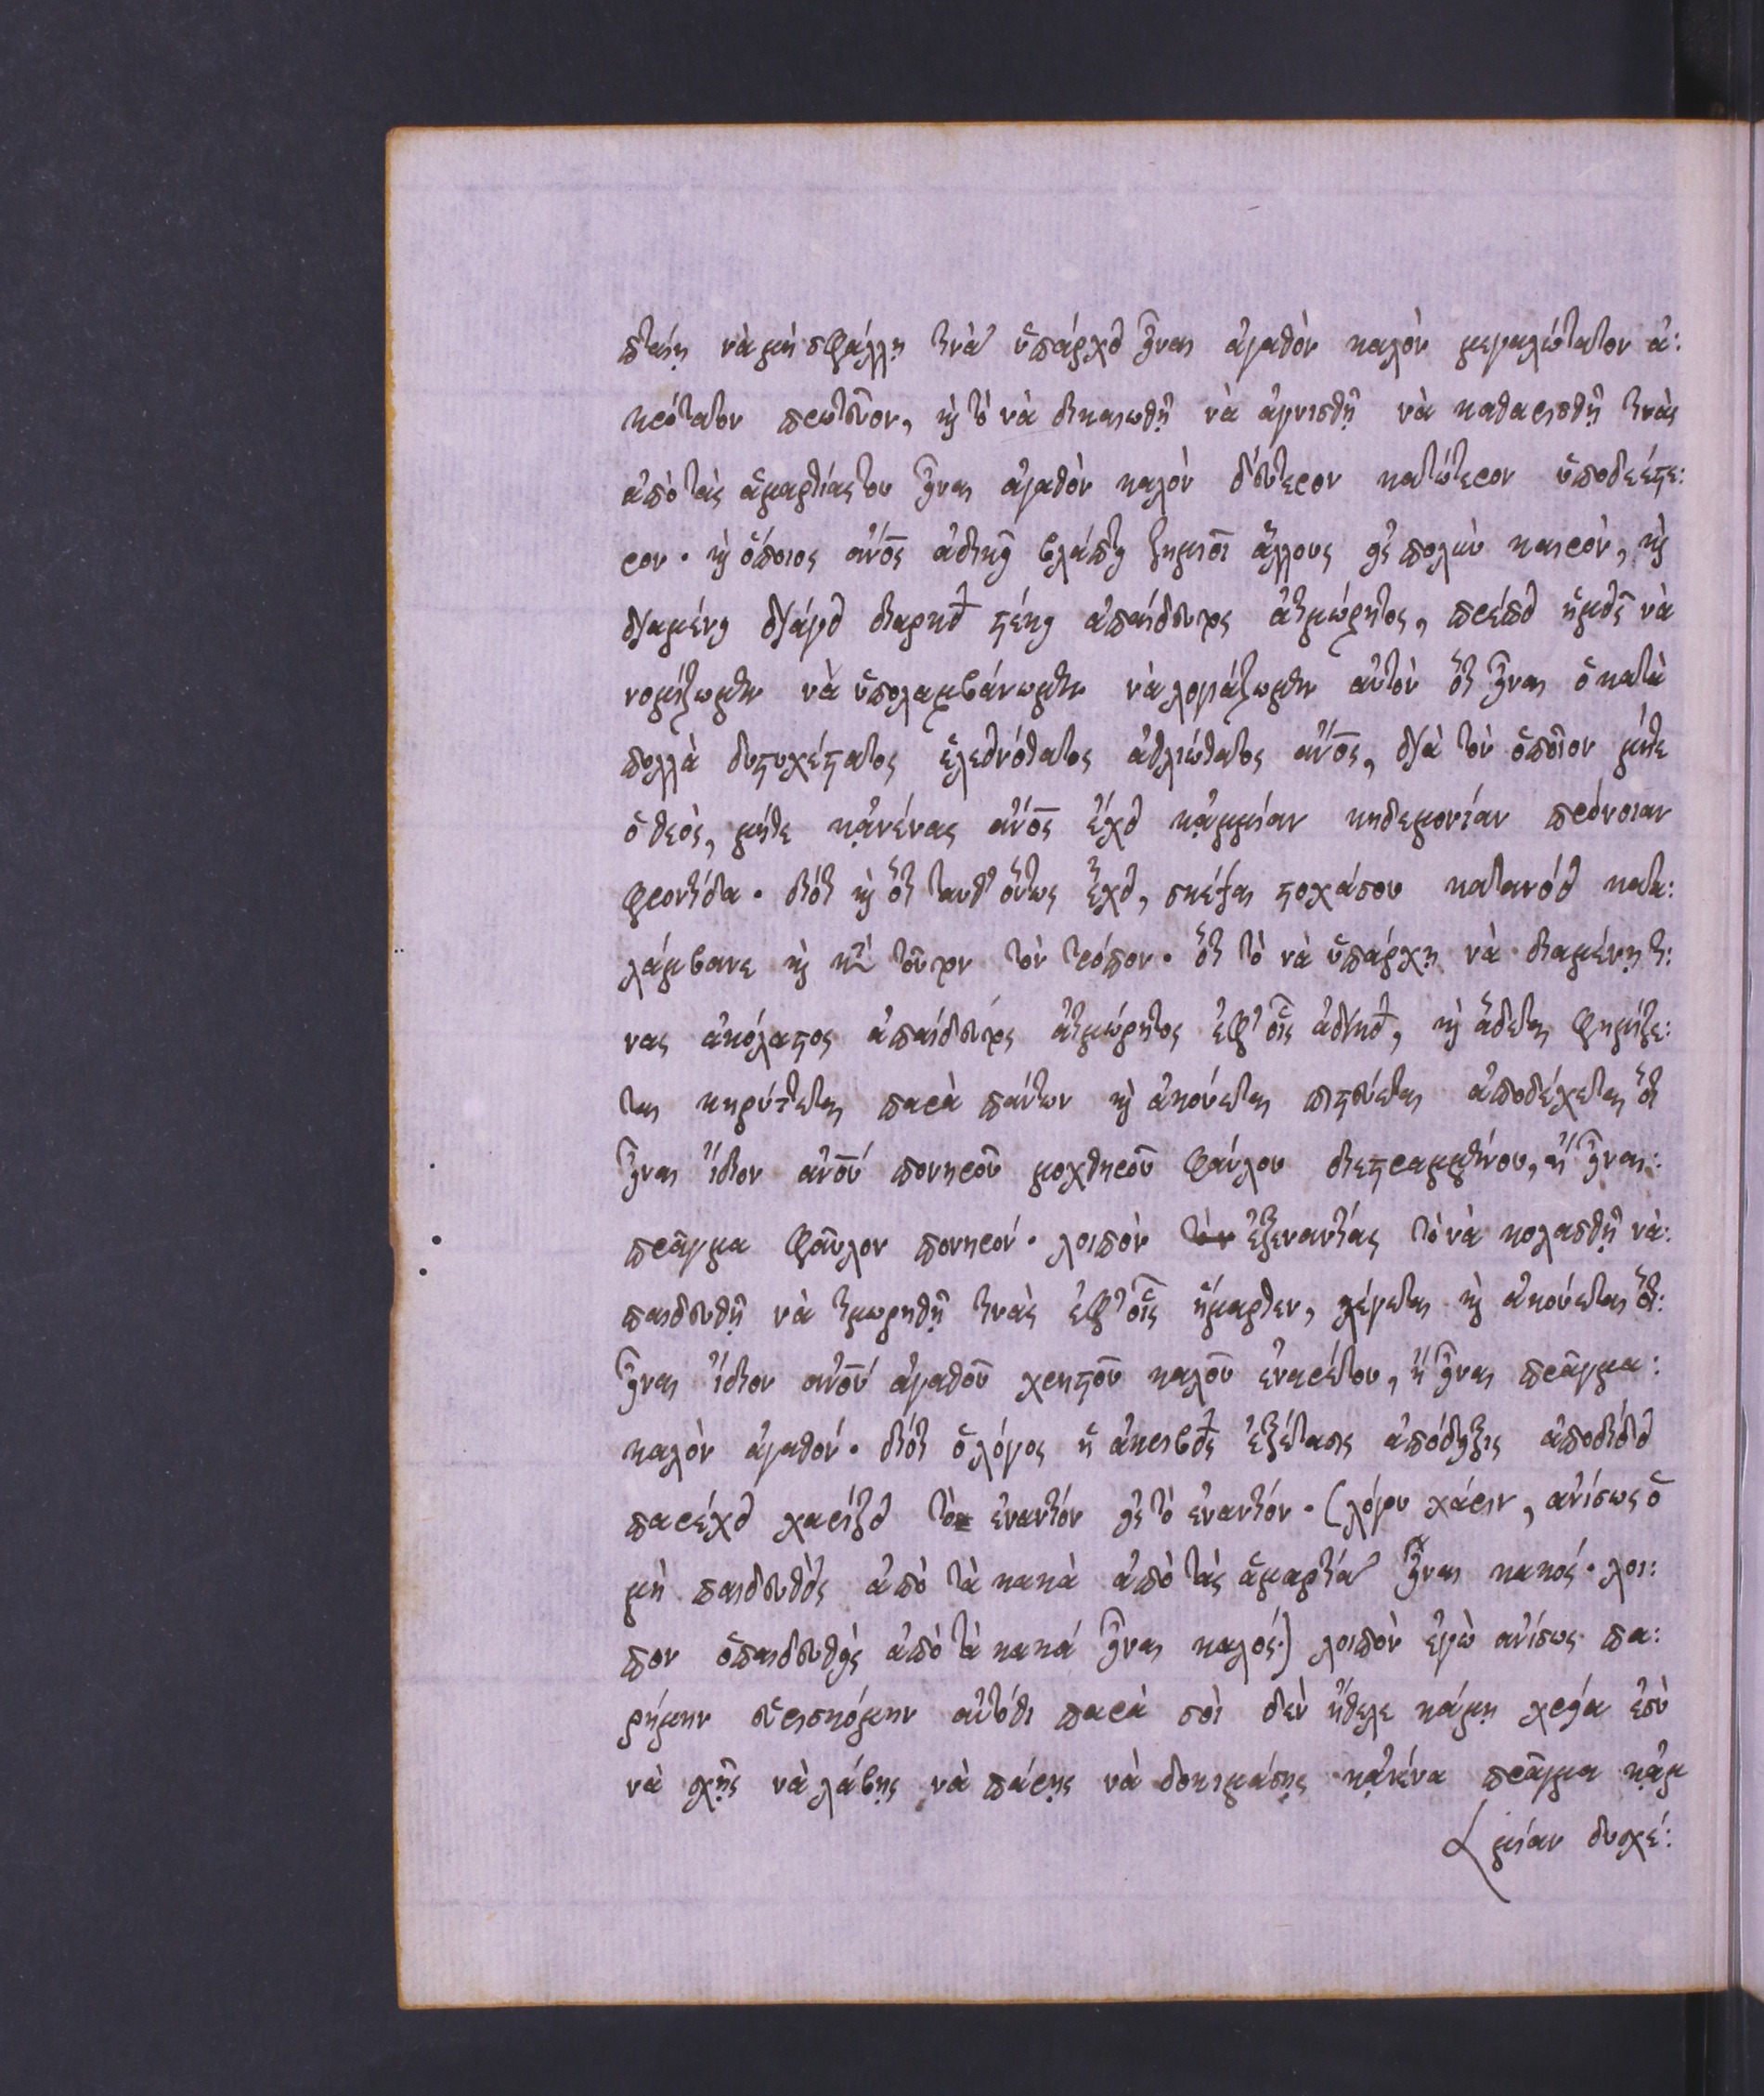 πταίη νὰ μὴ σφάλλῃ τινὰς ὑπάρχει εἶναι ἀγαθὸν καλὸν μεγαλώτατον ἀ:
κρότατον πρωτεῖον, καὶ τὸ νὰ δικαιωθῇ νὰ ἁγνισθῇ νὰ καθαρισθῇ τινὰς
ἀπὸ τὰς ἁμαρτίας του εἶναι ἀγαθὸν καλὸν δεύτερον κατώτερον ὑποδεέστε:
ρον· καὶ ὅποιος ἄνος ἀδικεῖ βλάπτει ζημιοῖ ἄλλους εἰς πολὺν καιρόν, καὶ
διαμένει διάγει διαρκεῖ στέκει ἀπαίδευτος ἀτιμώρητος, πρέπει ἡμεῖς νὰ
νομίζωμεν νὰ ὑπολαμβάνωμεν νὰ λογιάζωμεν αὐτὸν ὅτι εἶναι ὁ κατὰ
πολλὰ δυστυχέστατος ἐλεεινότατος ἀθλιώτατος ἄνος, διὰ τὸν ὁποῖον μήτε
ὁ θεὸς, μήτε κᾀνένας ἄνος ἔχει κᾀμμίαν κηδεμονίαν πρόνοιαν
φροντίδα· διότι καὶ ὅτι ταῦθ' οὕτως ἔχει, σκέψαι στοχάσου κατανόει κατα:
λάμβανε καὶ κατὰ τοῦτον τὸν τρόπον· ὅτι τὸ νὰ ὑπάρχῃ νὰ διαμένῃ τι:
νας ἀκόλαστος ἀπαίδευτος ἀτιμώρητος ἐφ' οἷς ἀδικεῖ, καὶ ᾄδεται φημίζε:
ται κηρύττεται παρὰ πάντων καὶ ἀκούεται πιστεύεται ἀποδέχεται ὅτι
εἶναι ἴδιον ἀνοῦ πονηροῦ μοχθηροῦ φαύλου διεστραμμένου, ἢ εἶναι:
πρᾶγμα φαῦλον πονηρόν· λοιπὸν τὸν ἐξεναντίας τὸ νὰ κολασθῇ νὰ:
παιδευθῇ νὰ τιμωρηθῇ τινὰς ἐφ' οἷς ἥμαρτεν, λέγεται καὶ ἀκούεται ὅτι:
εἶναι ἴδιον ἀνοῦ ἀγαθοῦ χρηστοῦ καλοῦ ἐναρέτου, ἢ εἶναι πρᾶγμα:
καλὸν ἀγαθόν· διότι ὁ λόγος ἡ ἀκριβὴς ἐξέτασις ἀπόδειξις ἀποδίδει
παρέχει χαρίζει τὸ ἐναντίον εἰς τὸ ἐναντίον· (λόγου χάριν, ἀνίσως ὁ
μὴ παιδευθεὶς ἀπὸ τὰ κακὰ ἀπὸ τὰς ἁμαρτίας εἶναι κακός· λοι:
πον ὁ παιδευθεὶς ἀπὸ τὰ κακά εἶναι καλός·) λοιπὸν ἐγὼ ἀνίσως πα:
ρήμην εὑρισκόμην αὐτόθι παρὰ σοὶ δὲν ἤθελε κάμῃ χρεία ἐσὺ
νὰ σχῇς νὰ λάβῃς νὰ πάρῃς νὰ δοκιμάσῃς κᾀνένα πρᾶγμα κᾀμ
μίαν δυσχέ: